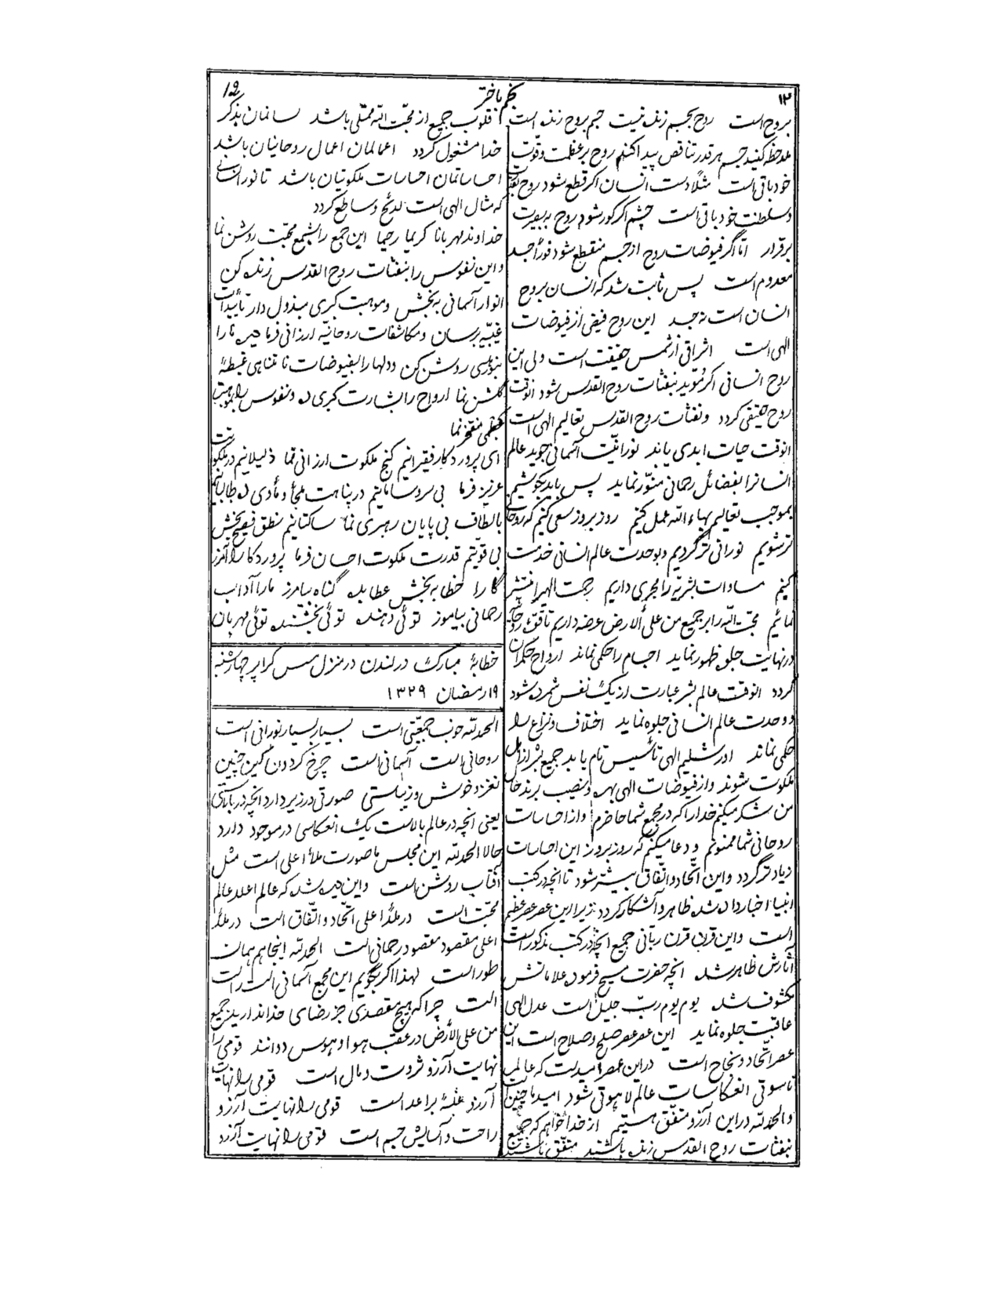 ۱۲
نجم باختر
بروح است روح بجسم زنده نیست جسم بروح زنده است
ملاحظه کنید جسم هر قدر تناقص پیدا کند روح بر عظمت و قوت
خود باقی است مثلاً دست انسان اگر قطع شود روح بقدرت
و سلطنت خود باقی است چشم اگر کور شود روح ببصیرت
برقرار اما اگر فیوضات روح از جسم منقطع شود فوراً جسد
معدوم است پس ثابت شد که انسان بروح
انسان است نه جسد این روح فیضی از فیوضات
الهی است اشراقی از شمس حقیقت است ولی این
روح انسانی اگر مؤید بنفثات روح القدس شود آنوقت
روح حقیقی گردد و نفثات روح القدس تعالیم الهی است
آنوقت حیات ابدی یابد نورانیت آسمانی جوید عالم
انسانرا بفضائل رحمانی منور نماید پس باید بکوشیم
بموجب تعالیم بهاء الله عمل کنیم روز بروز سعی کنیم که روحانی
تر شویم نورانی تر گردیم و بوحدت عالم انسانی خدمت
کنیم مساوات بشریه را مجری داریم رحمت الهیه را منتشر
نمائیم محبت الله را بر جمیع من علی الارض عرضه داریم تا قوت روحانیه
در نهایت جلوه ظهور نماید اجسام را حکمی نماند ارواح حکمران
گردد آنوقت عالم بشر عبارت از یک نفس شمرده شود
و وحدت عالم انسانی جلوه نماید اختلاف و نزاع را
حکمی نماند اورشلیم الهی تأسیس تام یابد جمیع بشر از اهل
ملکوت شوند و از فیوضات الهی بهره و نصیب برند حال
من شکر میکنم خدا را که در مجمع شما حاضرم و از احساسات
روحانی شما ممنونم و دعا میکنم که روز بروز این احساسات
زیاد تر گردد و این اتحاد و اتفاق بیشتر شود تا آنچه در کتب
انبیا اخبار داده شد ظاهر و آشکار گردد زیرا این عصر عصر عظیم
است و این قرن قرن ربانی جمیع آنچه در کتب مذکور است
آثارش ظاهر شد آنچه حضرت مسیح فرمود علاماتش
مکشوف شد یوم یوم رب جلیل است عدل الهی
عاقبت جلوه نماید این عصر عصر صلح و صلاح است این
عصر اتحاد و نجاح است در این عصر امید است که عالم
ناسوتی انعکاسات عالم لاهوتی شود امید ما چنین است
و الحمد لله در این آرزو متفق هستیم از خدا خواهم که جمیع
بنفثات روح القدس زنده باشند متفق باشند
قلوب جمیع از محبت الله ممتلی باشد لسانمان بذکر
خدا مشغول گردد اعمالمان اعمال روحانیان باشد
احساساتمان احساسات ملکوتیان باشد تا نورانیتی
که مثال الهی است لائح و ساطع گردد
خداوند مهربانا کریما رحیما این جمع را بشمع محبت روشن نما
و این نفوس را بنفثات روح القدس زنده کن
انوار آسمانی ببخش و موهبت کبری مبذول دار تأییدات
غیبیه برسان و مکاشفات روحانیه ارزانی فرما دیده ها را
بنور هدی روشن کن و دلها را بفیوضات نامتناهی غبطهٔ
گلشن نما ارواح را بشارت کبری ده و نفوس را بموهبت
عظمی مفتخر نما
ای پروردگار فقیرانیم گنج ملکوت ارزانی فرما ذلیلانیم در ملکوتت
عزیز فرما بی سر و سامانیم در پناهت ملجأ و مأوی ده طالبانیم
بالطاف بی پایان رهبری نما ساکتانیم نطق فصیح بخش
بی قوتیم قدرت ملکوت احسان فرما پروردگارا آمرز
گارا خطا ببخش عطا بده گناه بیامرز ما را آداب
رحمانی بیاموز توئی دهنده توئی بخشنده توئی مهربان
خطابهٔ مبارک در لندن در منزل مسس کراپر چهارشنبه
۱۹ رمضان ۱۳۲۹
الحمد لله خوب جمعیتی است بسیار بسیار نورانی است
روحانی است آسمانی است چرخ گردون کین چنین
نغز و خوش و زیباستی صورتی در زیر دارد آنچه در بالاستی
یعنی آنچه در عالم بالاست یک انعکاسی در موجود دارد
حالا الحمد لله این مجلس ما صورت ملأ اعلی است مثل
آفتاب روشن است و این دیده شد که عالم اعلا عالم
محبت است در ملأ اعلی اتحاد و اتفاق است در ملأ
اعلی مقصود مقصود رحمانی است الحمد لله اینجا هم همان
طور است لهذا اگر بگویم این مجمع آسمانی است راست
است چرا که هیچ مقصدی جز رضای خدا ندارید جمیع
من علی الأرض در عقب هوا و هوس دوانند قومی را
نهایت آرزو ثروت و مال است قومی را نهایت
آرزو غلبه بر اعداست قومی را نهایت آرزو
راحت و آسایش جسم است قومی را نهایت آرزو